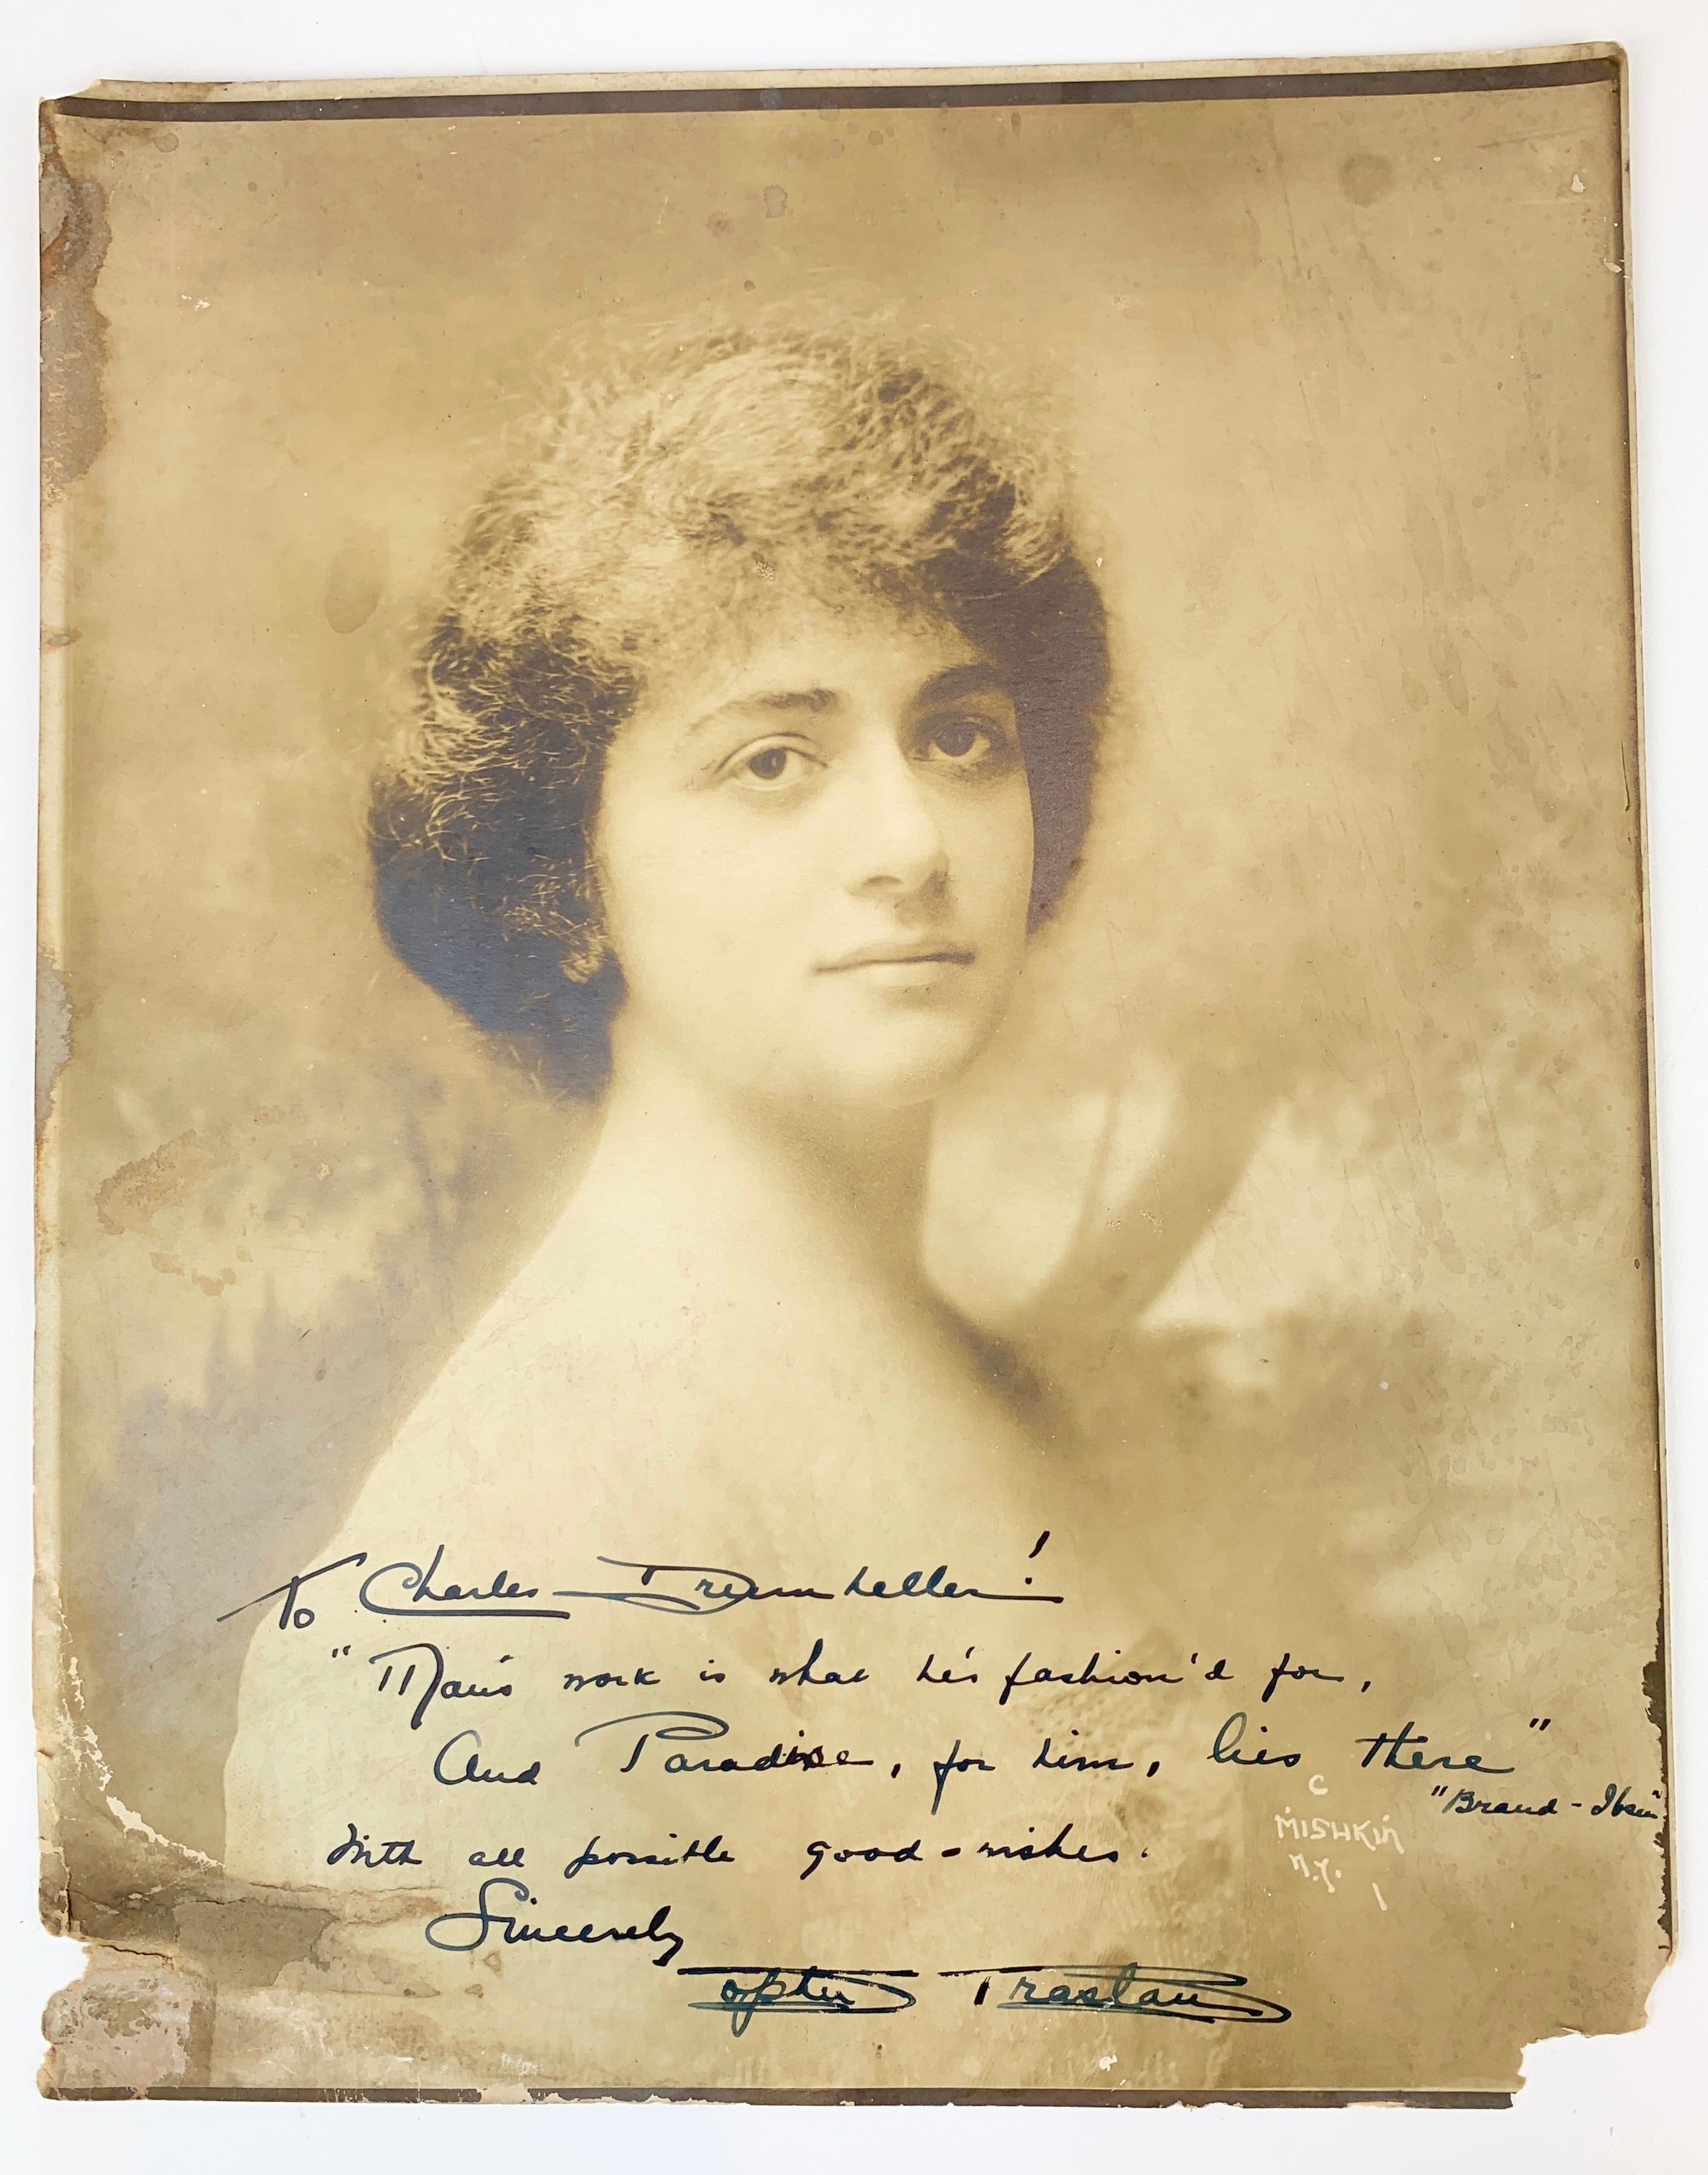 To Charles Drumheller!
"Man's work is what he's fashion'd for,
And Paradise, for him, lies there"
"Brand - Ibsen"
With all possible good-wishes.
Sincerely
Traslau
C
MISHKIN
N.Y.